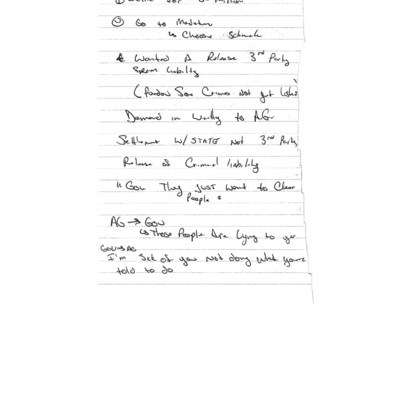 ② Go to Mediation
↳ Choose
Wanted A Release 3rd Party
from liability
(Pardon Some Crimes Not yet Listed
Demand in writing to AG
Settlement w/ STATE Not 3rd Party
Release of Criminal liability
"Gov They JUST want to Clear
People"
AG → Gov
↳ These People Are Lying to you
Gov → AG
I'm Sick of you Not doing what you're
told to do